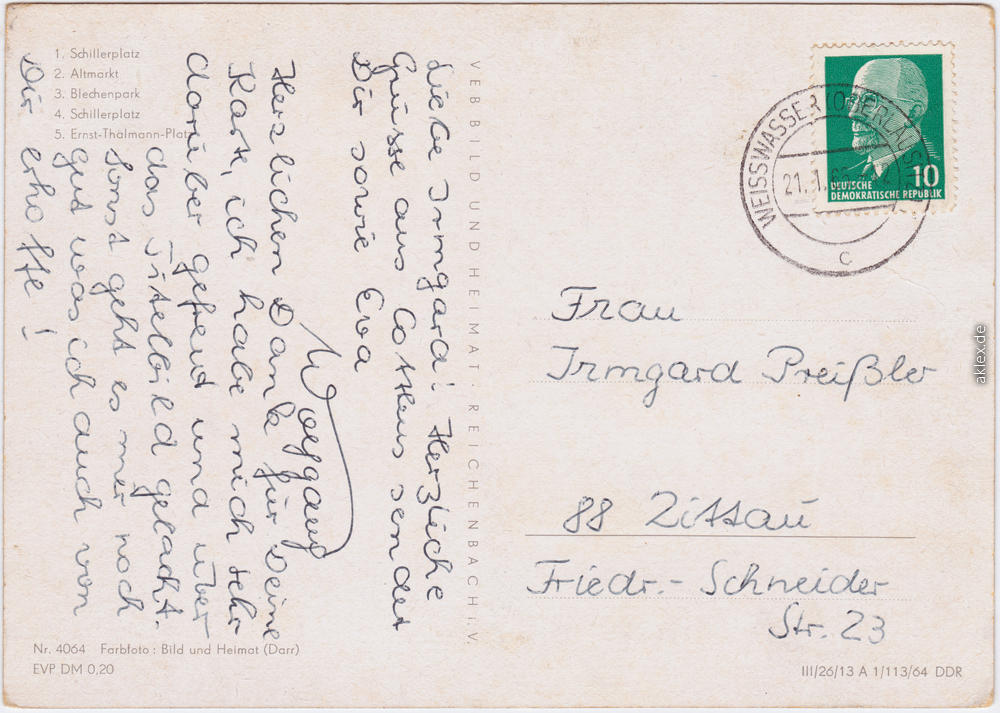 1. Schillerplatz
2. Altmarkt
3. Blechenpark
4. Schillerplatz
5. Ernst-Thälmann-Platz
Liebe Irmgard! Herzliche
Grüsse aus Cottbus sendet
Dir sowie Eva
Wolfgang
Herzlichen Dank für Deine
Karte, ich habe mich sehr
darüber gefreut und über
das Titelbild gelacht.
Sonst geht es mir noch
gut was ich auch von
Dir erhoffe!
VEB BILD UND HEIMAT · REICHENBACH i. V.
Nr. 4064 Farbfoto: Bild und Heimat (Darr)
EVP DM 0,20
WEISSWASSER (OBERLAUSITZ)
21.
C
10
DEUTSCHE
DEMOKRATISCHE REPUBLIK
Frau
Irmgard Preißler
88 Zittau
Friedr.-Schneider
Str. 23
III/26/13 A 1/113/64 DDR
aklex.de